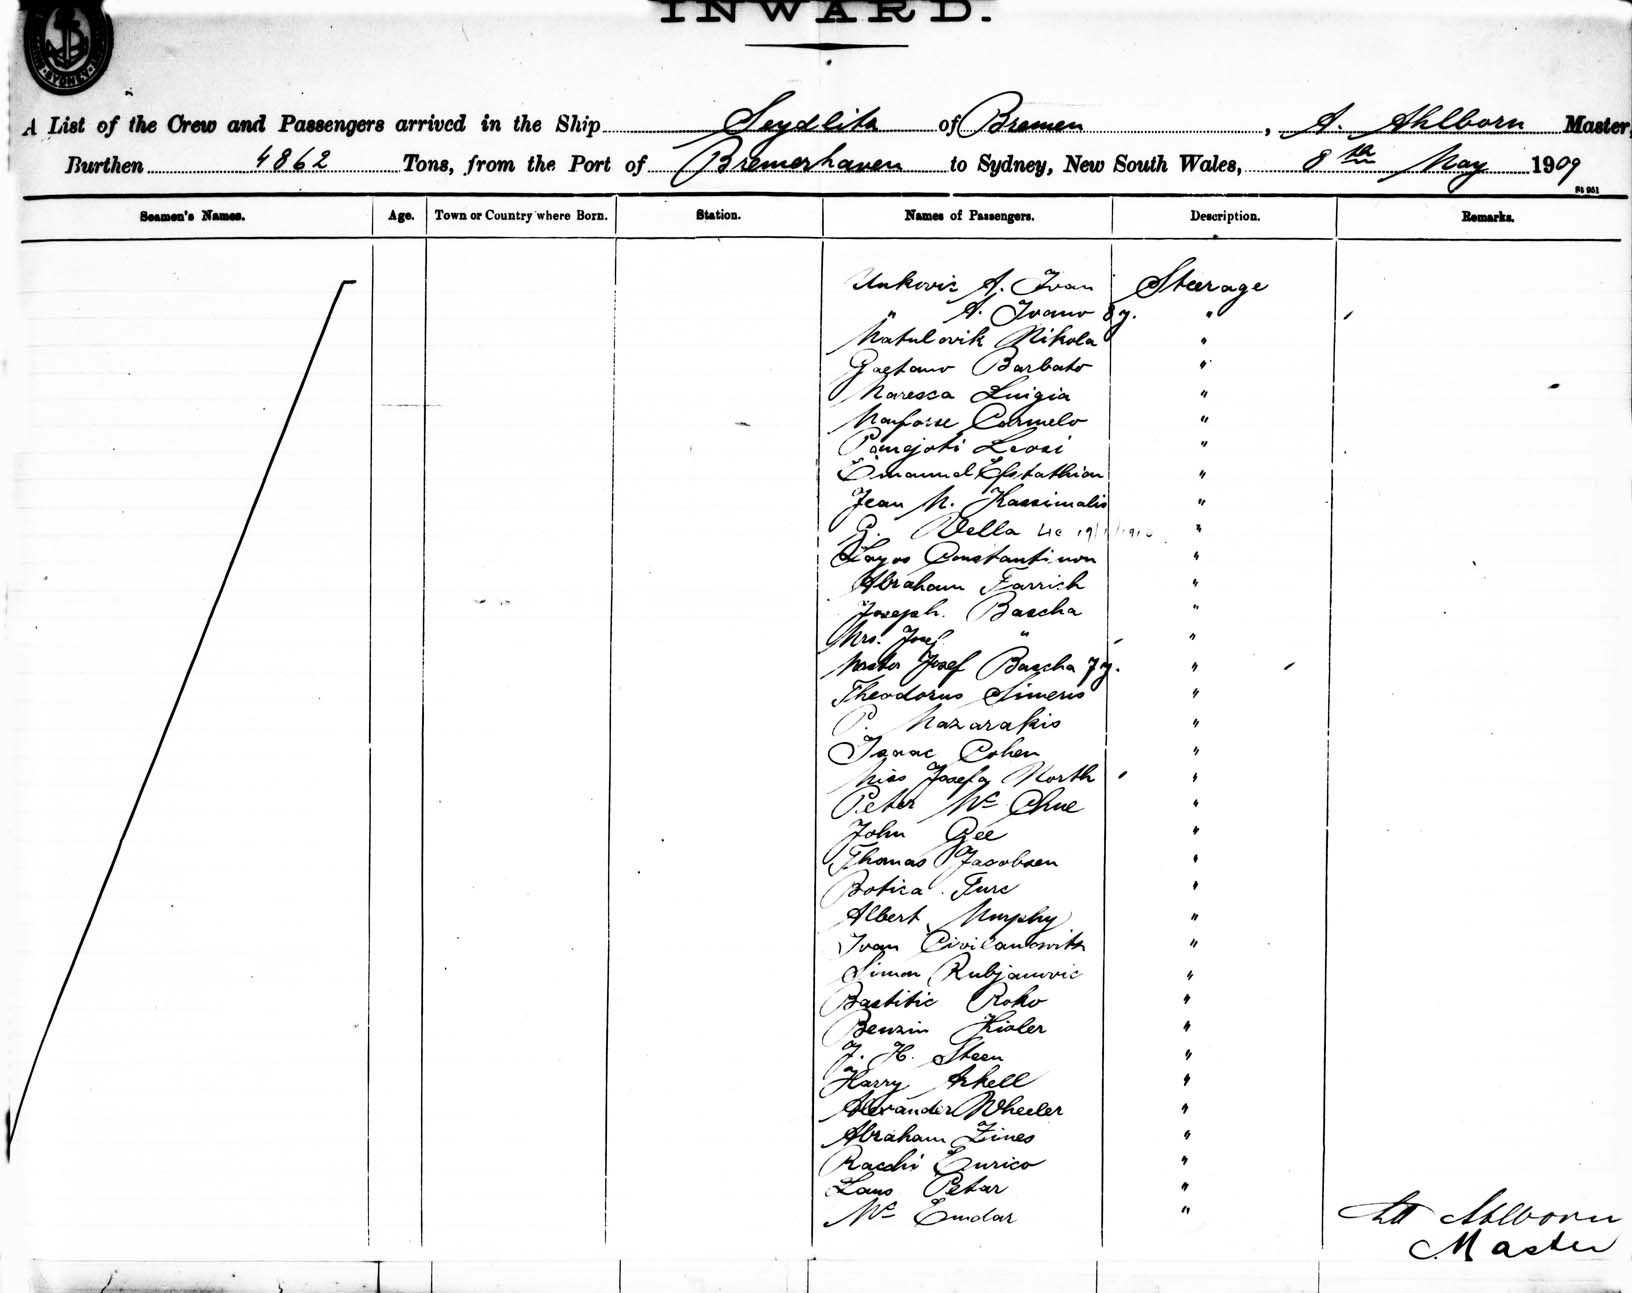 INWARD.
SYDNEY
A List of the Crew and Passengers arrived in the Ship Seydlitz of Bremen, A. Ahlborn Master,
Burthen 4862 Tons, from the Port of Bremerhaven to Sydney, New South Wales, 8th May 1909
Seamen's Names. Age. Town or Country where Born. Station. Names of Passengers. Description. Remarks.
Unkovic A. Ivan Steerage
" A. Ivano 8 y. "
Matulovik Nikola "
Gaetano Barbato "
Maresca Luigia "
Carmelo "
Panejoti Leosi "
Emanuel Efstathion "
Jean M. Kassimalis "
G. Vella "
Constantinon "
Abraham Farrich "
Joseph. Bascha "
Mrs. Josef " "
Master Josef Bascha 7 y. "
Theodorus Simeris "
P. Mazarakis "
Isaac Cohen "
Miss Josefa North "
Peter Mc Clue "
John Gee "
Thomas Jacobsen "
Botica Jure "
Albert Murphy "
Ivan Civilanowitz "
Simon Rubjanovic "
Bastitic Roko "
Benzin Kisler "
J. H. Steen "
Harry Arkell "
Alexander Wheeler "
Abraham Zines "
Racchi Enrico "
Laus Petar "
Mc Emdar "
Ahlborn
Master